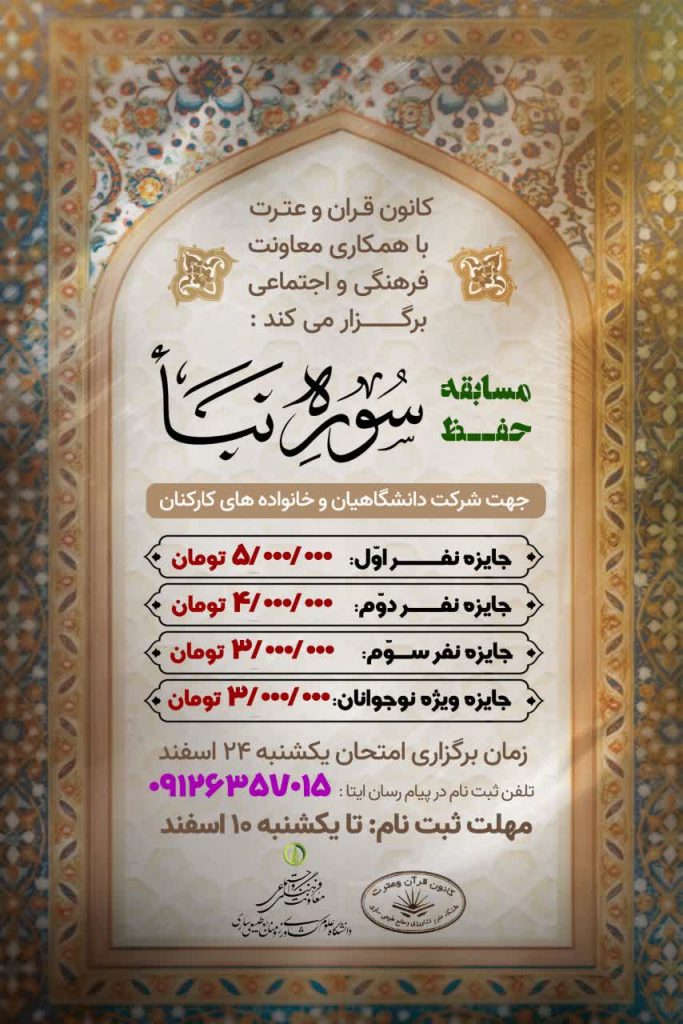 کانون قران و عترت
با همکاری معاونت
فرهنگی و اجتماعی
برگزار می کند :
مسابقه
حفظ
سُورِه نَبَأ
جهت شرکت دانشگاهیان و خانواده های کارکنان
جایزه نفر اوّل: ۵/۰۰۰/۰۰۰ تومان
جایزه نفر دوّم: ۴/۰۰۰/۰۰۰ تومان
جایزه نفر سوّم: ۳/۰۰۰/۰۰۰ تومان
جایزه ویژه نوجوانان: ۳/۰۰۰/۰۰۰ تومان
زمان برگزاری امتحان یکشنبه ۲۴ اسفند
تلفن ثبت نام در پیام رسان ایتا : ۰۹۱۲۶۳۵۷۰۱۵
مهلت ثبت نام: تا یکشنبه ۱۰ اسفند
کانون قرآن و عترت
دانشگاه علوم کشاورزی و منابع طبیعی ساری
معاونت فرهنگی و اجتماعی
دانشگاه علوم کشاورزی و منابع طبیعی ساری